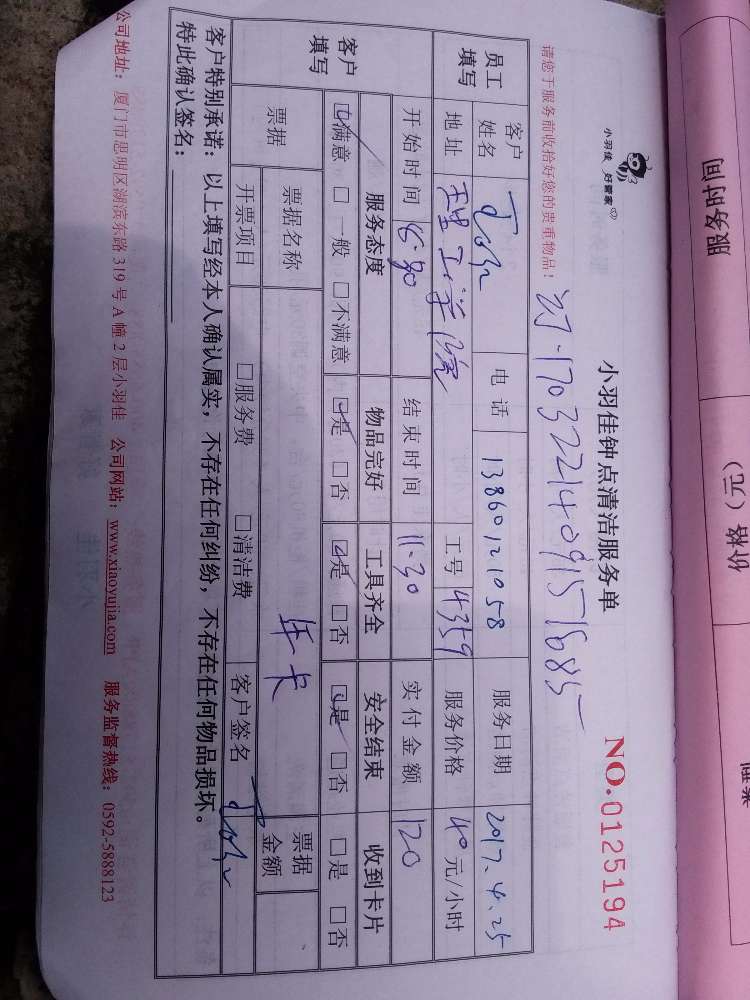 小羽佳 好管家
小羽佳钟点清洁服务单
NO.0125194
请您于服务前收拾好您的贵重物品！
17032214091571685
员工填写
客户姓名 John 电话 13860121058 服务日期 2017.4.25
地址 理工学院 工号 4359 服务价格 40元/小时
开始时间 8:30 结束时间 11:30 实付金额 120
客户填写
服务态度 物品完好 工具齐全 安全结束 收到卡片
☑满意 □一般 □不满意 ☑是 □否 ☑是 □否 ☑是 □否 □是 □否
票据 票据名称 年卡 票据金额
开票项目 □服务费 □清洁费 客户签名 John
客户特别承诺：以上填写经本人确认属实，不存在任何纠纷，不存在任何物品损坏。
特此确认签名：
公司地址：厦门市思明区湖滨东路319号A幢2层小羽佳 公司网站：www.xiaoyujia.com 服务监督热线：0592-5888123
服务时间
价格（元）